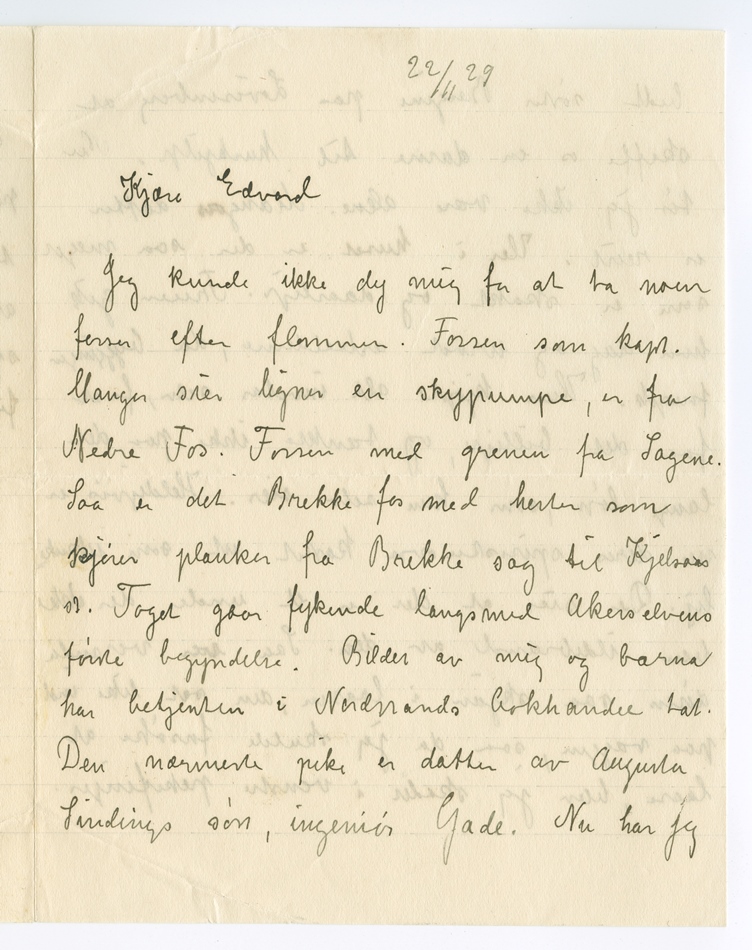 22/11 29
Kjære Edvard
Jeg kunde ikke dy mig for at ta noen
fosser efter flommen. Fossen som kapt.
Manger sier ligner en skypumpe, er fra
Nedre Fos. Fossen med grenen fra Sagene.
Saa er det Brekke fos med hester som
kjører planker fra Brekke sag til Kjelsaas
st. Toget gaar fykende langsmed Akerselvens
første begyndelse. Bildet av mig og barna
har betjenten i Nordstrands bokhandel tat.
Den nærmeste pike er datter av Augusta
Sindings søn, ingeniør Gade. Nu har jeg